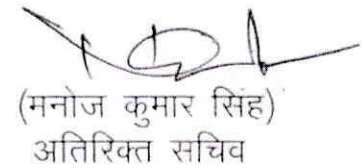 (मनोज कुमार सिंह)
अतिरिक्त सचिव